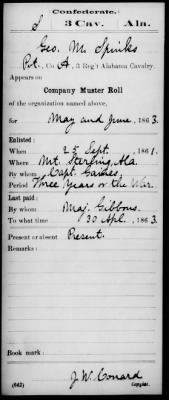 Confederate.
S 3 Cav. Ala.
Geo. M. Spinks
Pvt., Co. A, 3 Reg't Alabama Cavalry.
Appears on
Company Muster Roll
of the organization named above,
for May and June, 1863.
Enlisted:
When 25 Sept., 1861.
Where Mt. Sterling, Ala.
By whom Capt. Gaines
Period Three Years or the War.
Last paid:
By whom Maj. Gibbons
To what time 30 Apl., 1863.
Present or absent Present.
Remarks:
Book mark:
J. W. Conard
(642) Copyist.